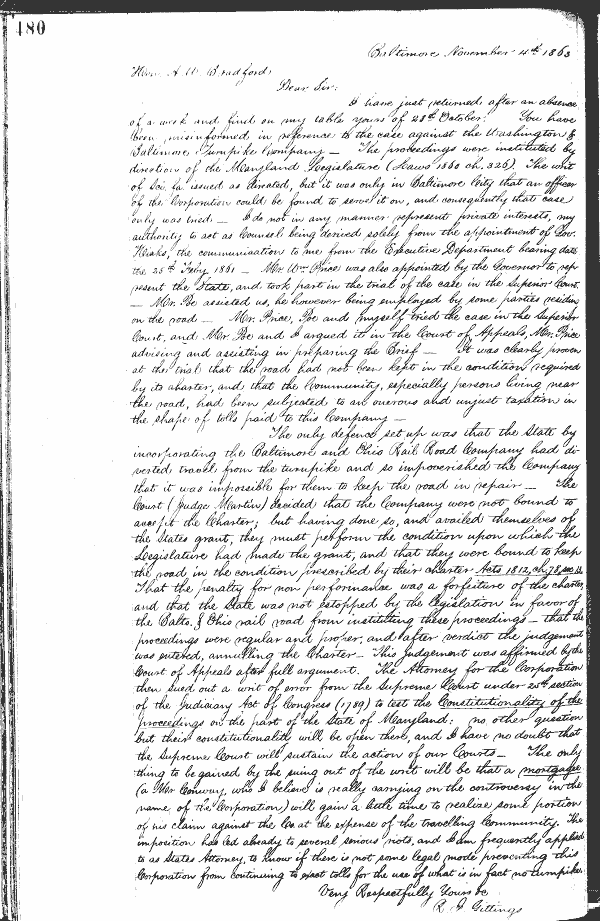 480
Baltimore November 4th 1863
Hon. A. W. Bradford,
Dear Sir:
I have just returned after an absence
of a week and find on my table yours of 28th October. You have
been misinformed in reference to the case against the Washington &
Baltimore Turnpike Company — The proceedings were instituted by
direction of the Maryland Legislature (Laws 1860 ch. 326). The writ
of Sci. fa. issued as directed, but it was only in Baltimore City that an officer
of the Corporation could be found to serve it on, and consequently that case
only was tried — I do not in any manner represent private interests, my
authority to act as Counsel being derived solely from the appointment of Gov.
Hicks, the communication to me from the Executive Department bearing date
the 25th Feby 1861 — Mr. Wm. Price was also appointed by the Governor to rep-
resent the State, and took part in the trial of the case in the Superior Court.
— Mr. Poe assisted us, he however being employed by some parties residing
on the road — Mr. Price, Poe and myself tried the case in the Superior
Court, and Mr. Poe and I argued it in the Court of Appeals, Mr. Price
advising and assisting in preparing the Brief — It was clearly proven
at the trial that the road had not been kept in the condition required
by its charter, and that the Community, especially persons living near
the road, had been subjected to an onerous and unjust taxation in
the shape of tolls paid to this Company —
The only defence set up was that the State by
incorporating the Baltimore and Ohio Rail Road Company had di-
verted travel from the turnpike and so impoverished the Company
that it was impossible for them to keep the road in repair — The
Court (Judge Martin) decided that the Company were not bound to
accept the Charter; but having done so, and availed themselves of
the States grant, they must perform the condition upon which the
Legislature had made the grant, and that they were bound to keep
the road in the condition prescribed by their charter Acts 1812, ch. 78, sec.
That the penalty for non performance was a forfeiture of the charter
and that the State was not estopped by the legislation in favor of
the Balto. & Ohio rail road from instituting these proceedings — that the
proceedings were regular and proper, and after verdict the judgement
was entered, annulling the Charter — This judgement was affirmed by the
Court of Appeals after full argument. The Attorney for the Corporation
then sued out a writ of error from the Supreme Court under 25th section
of the Judiciary Act of Congress (1789) to test the Constitutionality of the
proceedings on the part of the State of Maryland: no other question
but their constitutionality will be open there, and I have no doubt that
the Supreme Court will sustain the action of our Courts — The only
thing to be gained by the suing out of the writ will be that a mortgagee
(a Mr Conway, who I believe is really carrying on the controversy in the
name of the Corporation) will gain a little time to realize some portion
of his claim against the Co at the expense of the travelling Community. The
imposition has led already to several serious riots, and I am frequently applied
to as States Attorney, to know if there is not some legal mode preventing this
Corporation from continuing to exact tolls for the use of what is in fact no turnpike.
Very Respectfully Yours &c
R. J. Gittings